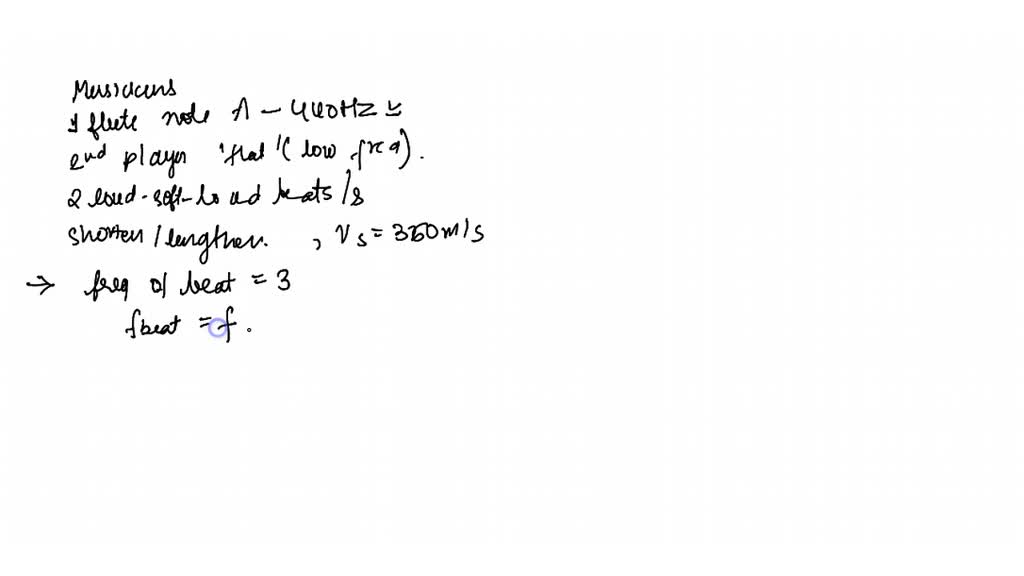 Musicians
1 flute note A - 440HZ
2nd player 'flat' (low freq).
2 loud-soft-loud beats/s
shorten/lengthen. , Vs = 350m/s
→ freq of beat = 3
fbeat = f.